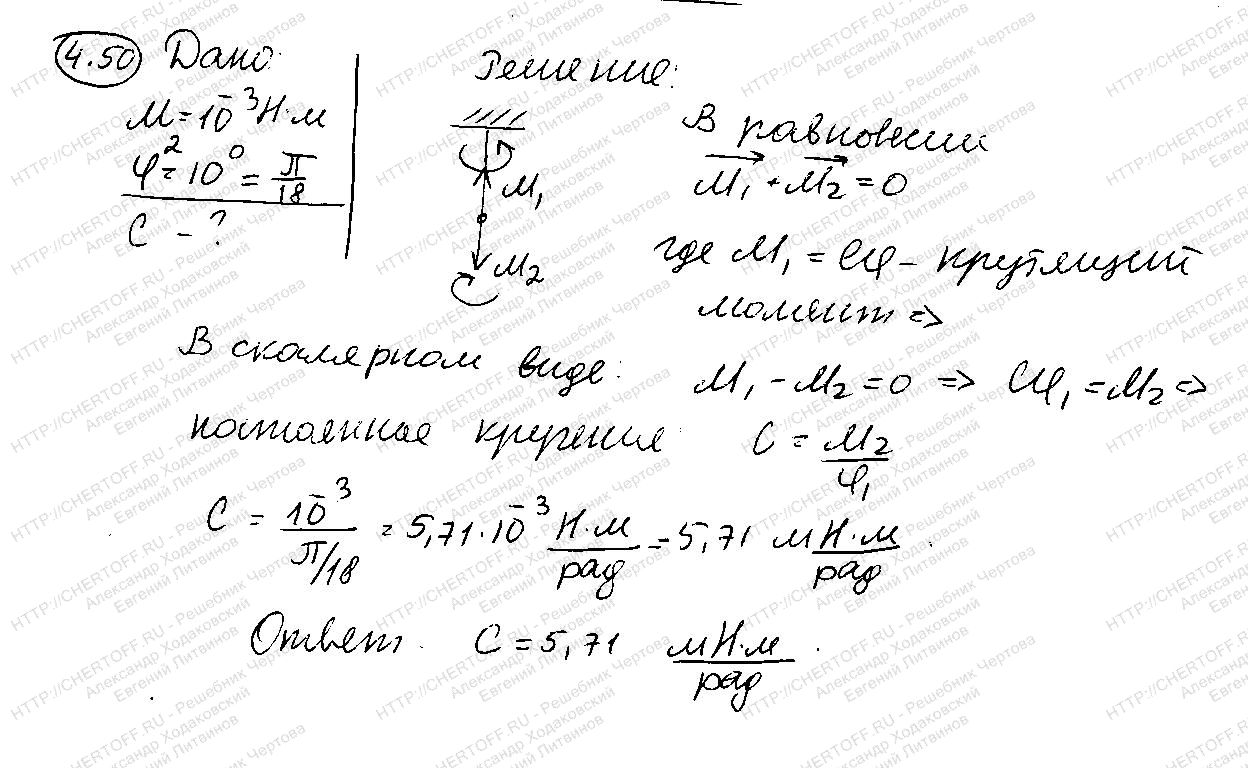 4.50 Дано:
M = 10⁻³ Н·м
φ² = 10⁰ = π/18
C - ?
Решение:
M₁
M₂
В равновесии
M₁ + M₂ = 0
где M₁ = Cφ - крутящий
момент =>
В скалярном виде: M₁ - M₂ = 0 => Cφ₁ = M₂ =>
постоянная кручения C = M₂/φ₁
C = 10⁻³/(π/18) = 5,71·10⁻³ Н·м/рад = 5,71 мН·м/рад.
Ответ. C = 5,71 мН·м/рад.
HTTP://CHERTOFF.RU - Решебник Чертова
Александр Ходаковский
Евгений Литвинов